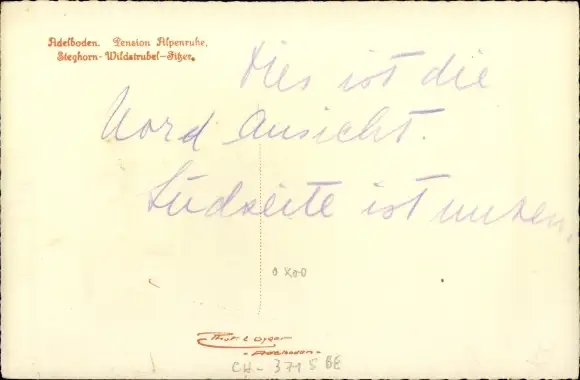 Adelboden. Pension Alpenruhe.
Steghorn-Wildstrubel-Fitzer.
Dies ist die
Nord Ansicht.
Südseite ist unten.
Adelboden
CH-3715 BE